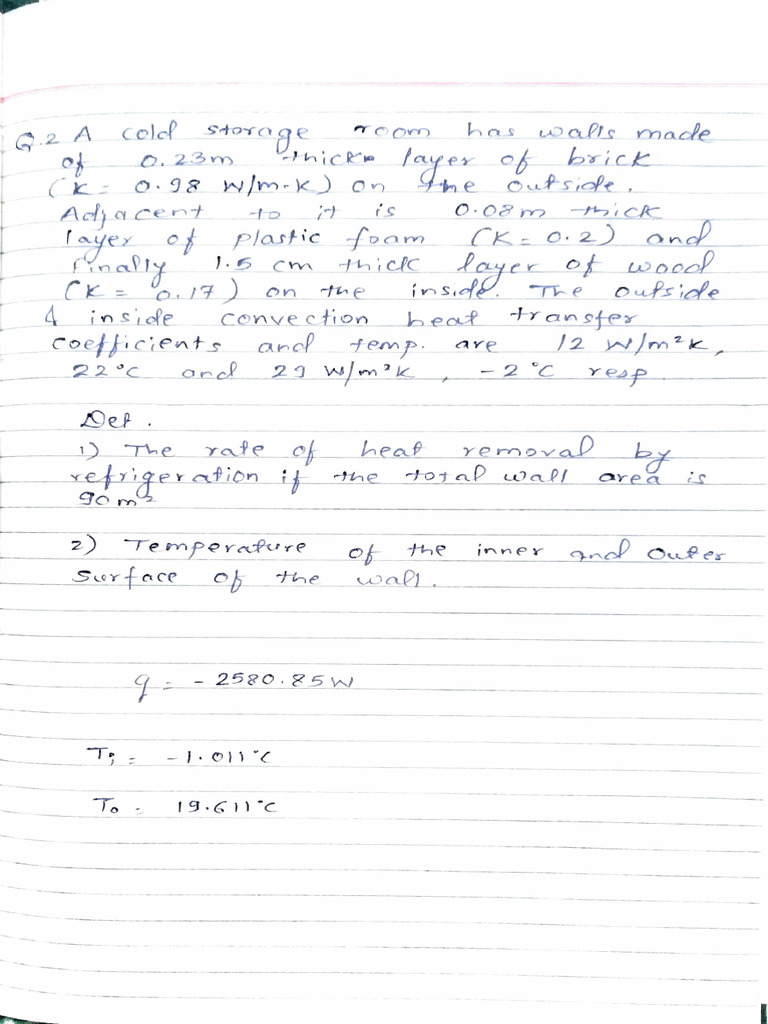 Q.2 A cold storage room has walls made
of 0.23m thick layer of brick
(K = 0.98 W/m-K) on the outside.
Adjacent to it is 0.08m thick
layer of plastic foam (K = 0.2) and
finally 1.5 cm thick layer of wood
(K = 0.17) on the inside. The outside
& inside convection heat transfer
coefficients and temp. are 12 W/m²K,
22°C and 29 W/m²K, -2°C resp
Det.
1) The rate of heat removal by
refrigeration if the total wall area is
90m²
2) Temperature of the inner and outer
surface of the wall.
q = - 2580.85W
Ti = -1.011°C
To = 19.611°C